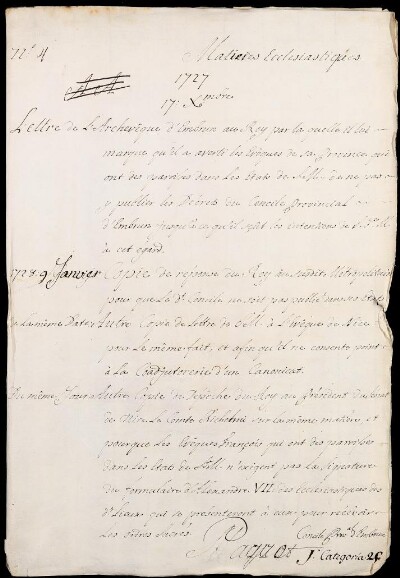 N.º 4
Matieres Ecclesiastiques
1727
17: Xmbre
Lettre de L'Archevêque d'Embrun au Roy par la quelle Il lui
marque qu'il a averti les Evêques de sa Province qui
ont des paroisses dans les Etats de S. M. de ne pas
y publier les Decrets du Concile Provincial
d'Embrun jusqu'à ce qu'il sçût les intentions de S. M.
à cet égard.
1728: 9 Janvier Copie de réponse du Roy au susdit Métropolitain
pour que le Dt. Concile ne soit pas publié dans ses Etats
de la même Datte Autre Copie de Lettre de S. M. à l'Evêque de Nice
pour le même fait, et afin qu'il ne consente point
à la Coadjutorerie d'un Canonicat.
Du même Jour Autre Copie de Dépêche du Roy au Président du Senat
de Nice Le Comte Richelmi sur la même matiere, et
pourque les Evêques François qui ont des paroisses
dans les Etats de S. M. n'exigent pas la signature
du formulaire d'Alexandre VII des Ecclesiastiques des
dits Lieux qui se présenteront à eux pour recevoir
les ordres sacrés.
Concile Prov.l d'Embrun
J.a Categoria 2e